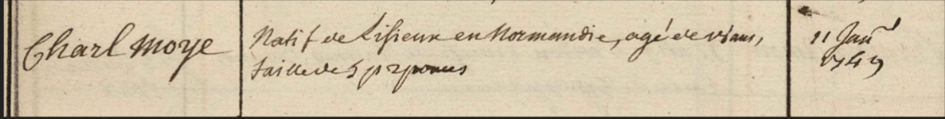 Charl moye
Natif de Lisieux en Normandie, agé de ans,
taille de 5 p 2 pouces
11 Janr
1749